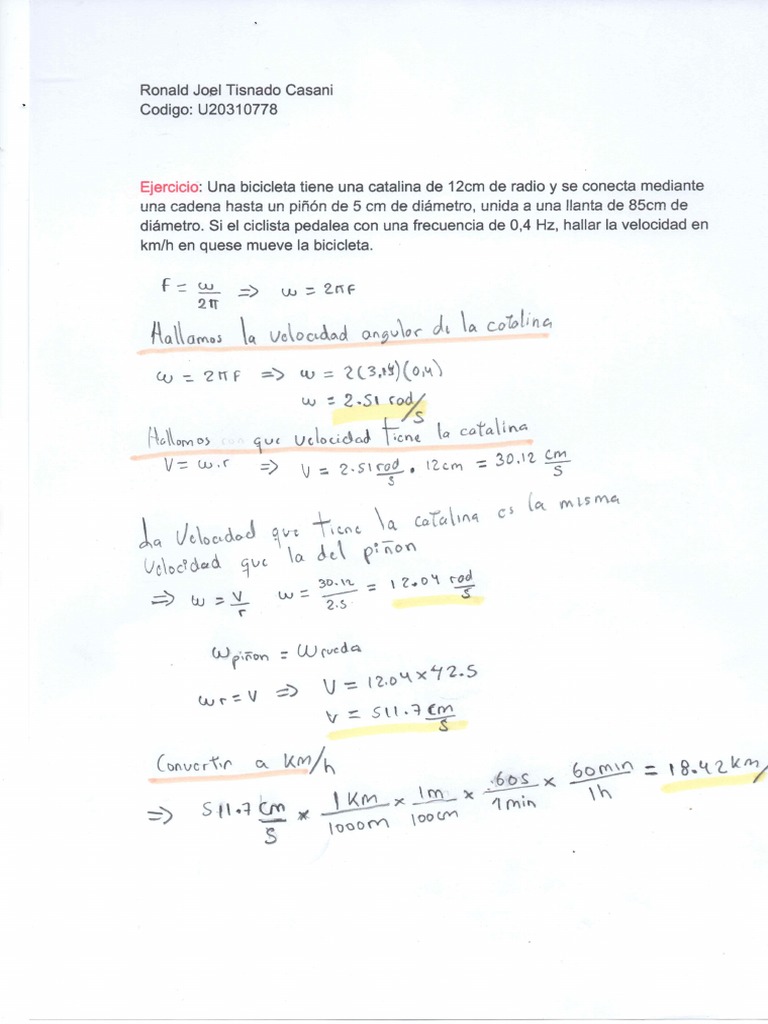 Ronald Joel Tisnado Casani
Codigo: U20310778
Ejercicio: Una bicicleta tiene una catalina de 12cm de radio y se conecta mediante
una cadena hasta un piñón de 5 cm de diámetro, unida a una llanta de 85cm de
diámetro. Si el ciclista pedalea con una frecuencia de 0,4 Hz, hallar la velocidad en
km/h en quese mueve la bicicleta.
F = ω/2π => ω = 2πF
Hallamos la velocidad angular de la catalina
ω = 2πF => ω = 2(3,14)(0,4)
ω = 2.51 rad/s
Hallamos con que velocidad tiene la catalina
V = ω.r => V = 2.51 rad/s . 12cm = 30.12 cm/s
La Velocidad que tiene la catalina es la misma
Velocidad que la del piñon
=> ω = V/r ω = 30.12/2.5 = 12.04 rad/s
ω piñon = ω rueda
ωr = V => V = 12.04 x 42.5
V = 511.7 cm/s
Convertir a KM/h
=> 511.7 cm/s x 1 KM/1000m x 1m/100cm x 60s/1min x 60min/1h = 18.42 km/